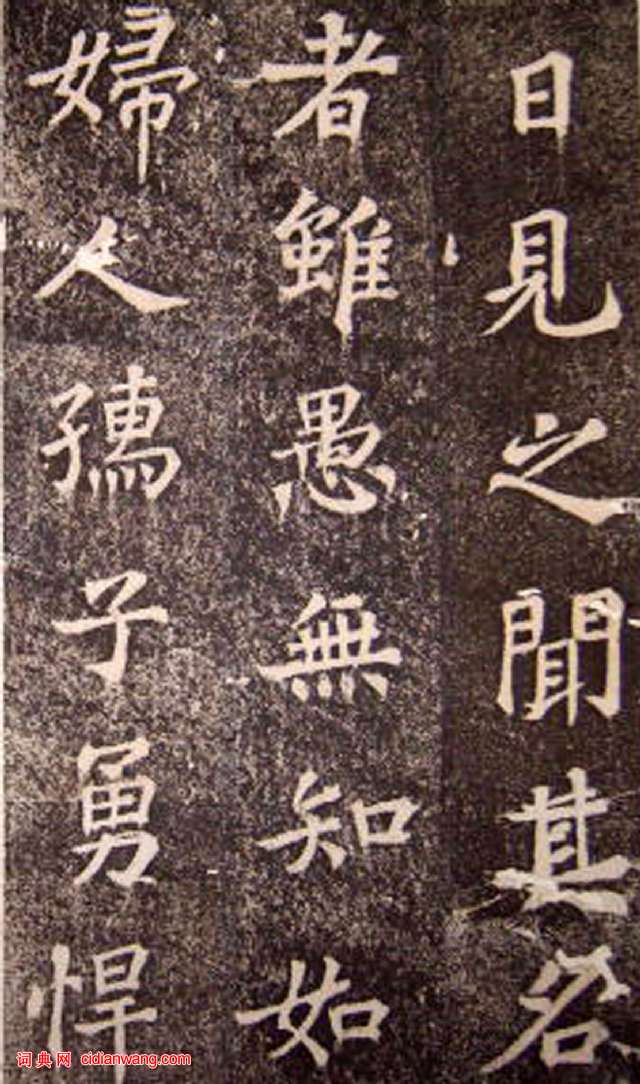 日見之聞其名
者雖愚無知如
婦人孺子勇悍
词典网 cidianwang.com